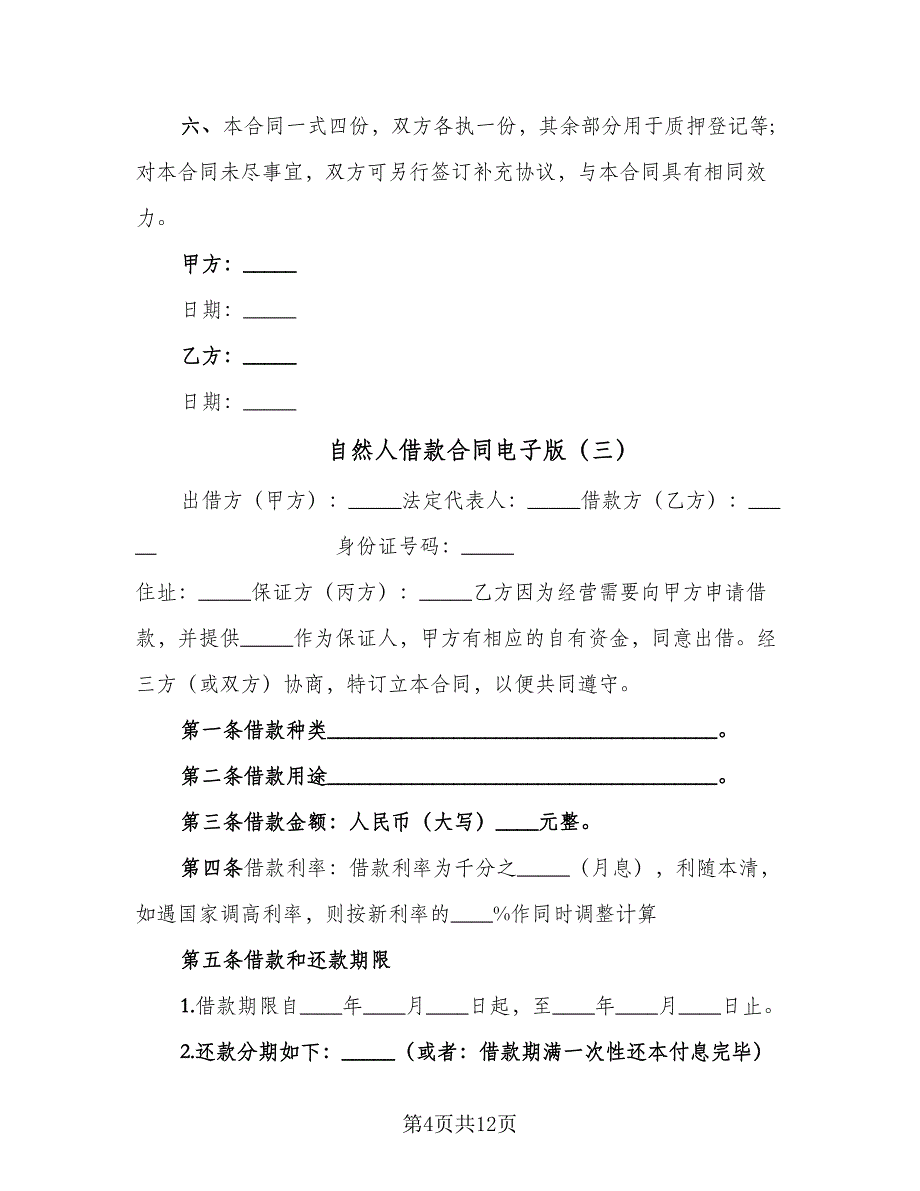 六、本合同一式四份，双方各执一份，其余部分用于质押登记等;
对本合同未尽事宜，双方可另行签订补充协议，与本合同具有相同效
力。
甲方：_____
日期：_____
乙方：_____
日期：_____
自然人借款合同电子版（三）
出借方（甲方）：_____法定代表人：_____借款方（乙方）：___
__ 身份证号码：_____
住址：_____保证方（丙方）：_____乙方因为经营需要向甲方申请借
款，并提供_____作为保证人，甲方有相应的自有资金，同意出借。经
三方（或双方）协商，特订立本合同，以便共同遵守。
第一条借款种类_____________________________________。
第二条借款用途_____________________________________。
第三条借款金额：人民币（大写）____元整。
第四条借款利率：借款利率为千分之_____（月息），利随本清，
如遇国家调高利率，则按新利率的____%作同时调整计算
第五条借款和还款期限
1.借款期限自____年____月____日起，至____年____月____日止。
2.还款分期如下：_____（或者：借款期满一次性还本付息完毕）
第4页共12页